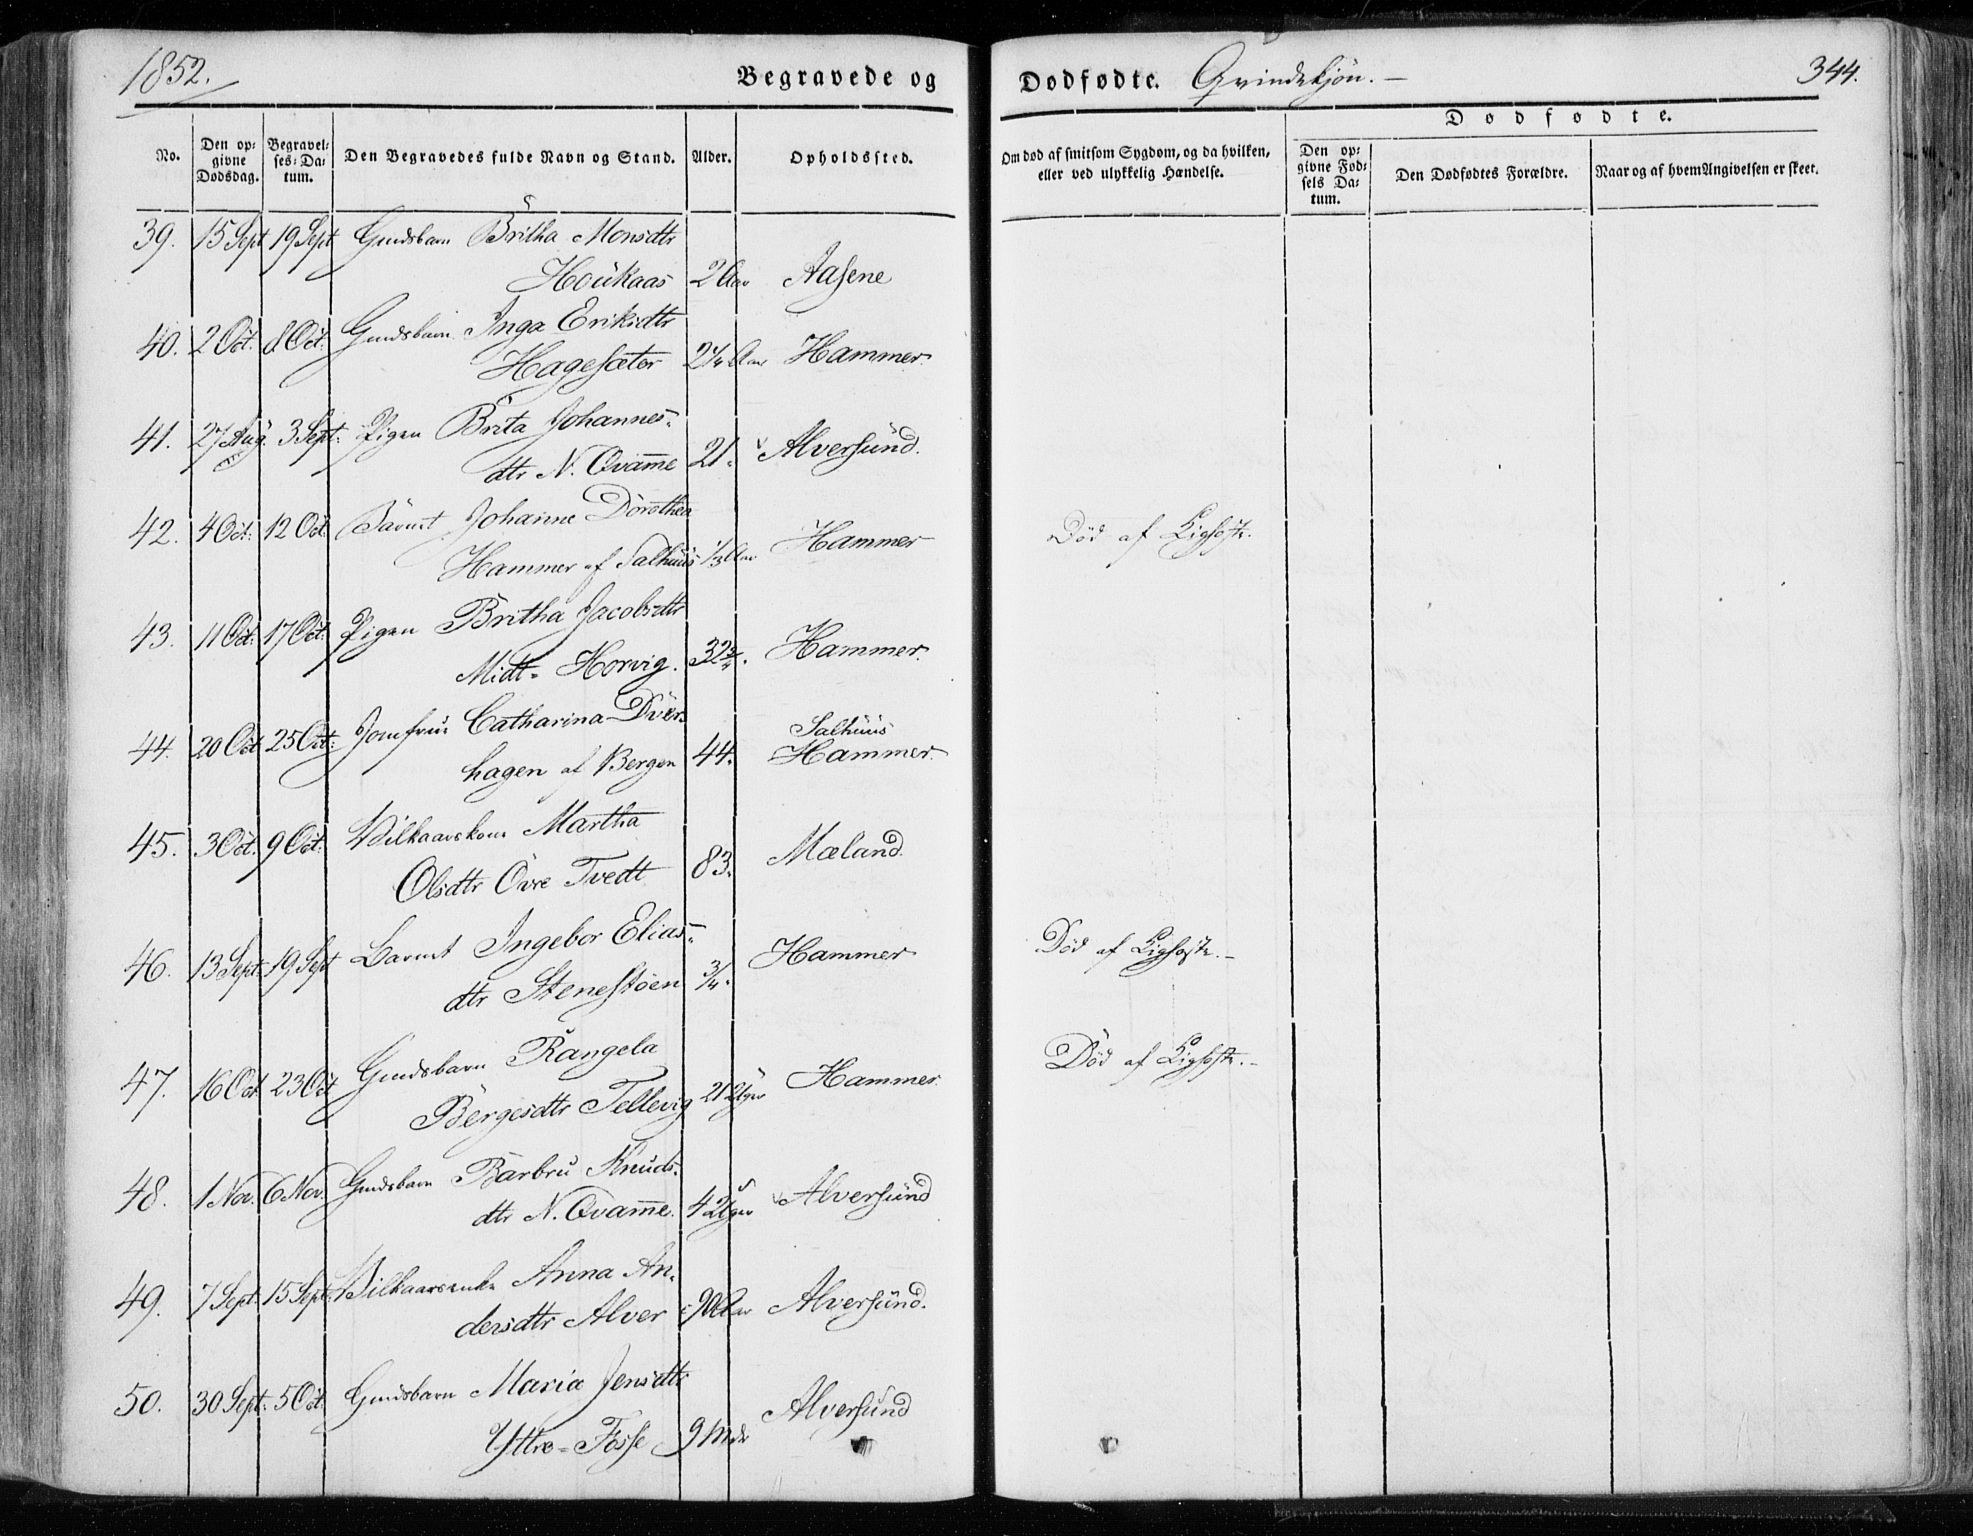 1852.
Begravede og
Dødfødte. Qvindekjøn.
344.
No.
Den op-
givne
Dødsdag.
Begravel-
ses-Da-
tum.
Den Begravedes fulde Navn og Stand.
Alder.
Opholdssted.
Om død af smitsom Sygdom, og da hvilken,
eller ved ulykkelig Hændelse.
Dødfødte.
Den op-
givne Fød-
sels Da-
tum.
Den Dødfødtes Forældre.
Naar og af hvem Angivelsen er skeet.
39. 15 Sept 19 Sept Gmdsbarn Britha Monsdtr
Houkaas 2 Aar Aasene
40. 2 Oct. 8 Oct. Gmdsbarn Inga Eriksdtr
Hagesæter 2 1/4 Aar Hammer
41. 27 Aug. 3 Sept. Pigen Brita Johannes-
dtr N. Qvamme 21. Alversund.
42. 4 Oct. 12 Oct. Barnet Johanne Dorothea
Hammer af Salhuus 1/3 Aar Hammer Død af Kighoste.
43. 11 Oct. 17 Oct. Pigen Britha Jacobsdtr
Midt-Horvig. 32 3/4. Hammer.
44. 20 Oct 25 Oct. Jomfrue Catharina
hagen af Bergen 44. Salhuus
Hammer.
45. 3 Oct. 9 Oct. Vilkaarskone Martha
Olsdtr Övre Tvedt 83. Mæland.
46. 13 Sept. 19 Sept Barnet Ingebor Elias-
dtr Stenestöen 3/4. Hammer Død af Kighoste.
47. 16 Oct 23 Oct Gmdsbarn Rangela
Börgesdtr Tellevig 21 Uger Hammer. Død af Kighoste.
48. 1 Nov. 6 Nov. Gmdsbarn Barbru Knuds-
dtr N. Qvamme. 4 Uger Alversund
49. 7 Sept. 15 Sept. Vilkaarsenke Anna An-
dersdtr Alver 90 Aar Alversund.
50. 30 Sept. 5 Oct. Gmdsbarn Maria Jensdtr
Yttre-Fosse 9 Mdr Alversund